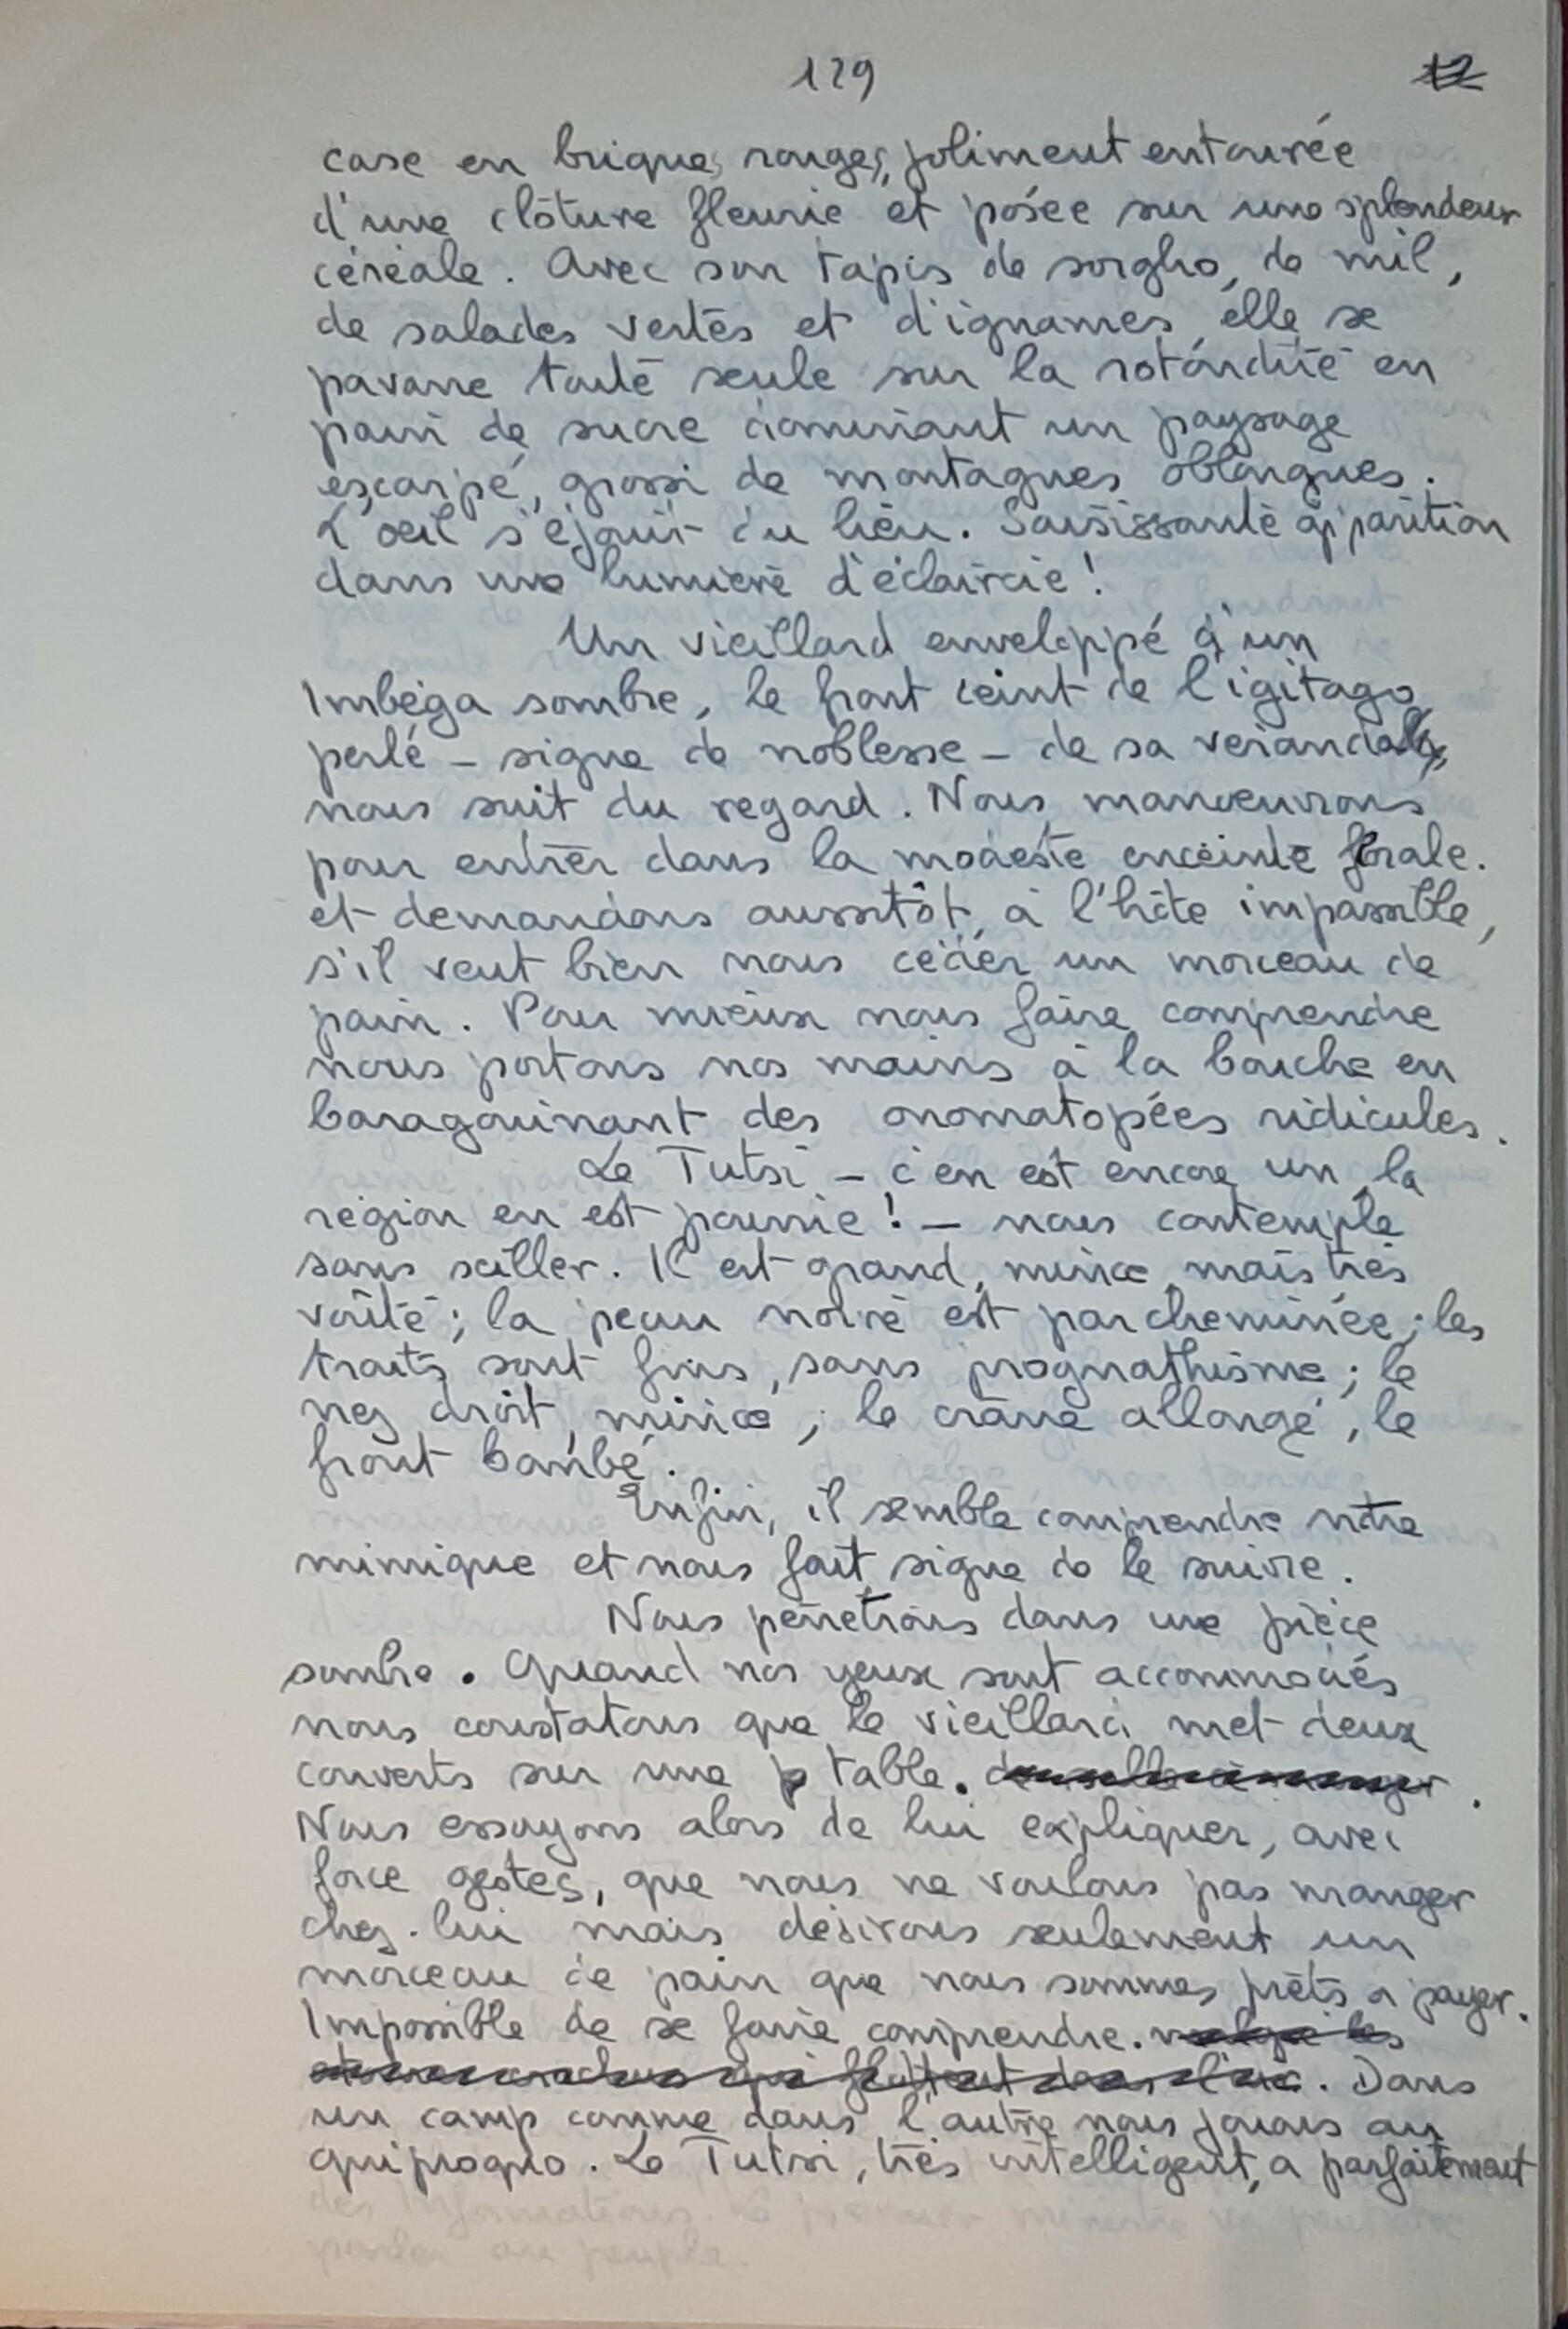 129
12
case en briques rouges, joliment entourée
d'une clôture fleurie et posée sur une splendeur
céréale. Avec son tapis de sorgho, de mil,
de salades vertes et d'ignames, elle se
pavane toute seule sur la rotondité en
pain de sucre dominant un paysage
escarpé, grossi de montagnes oblongues.
L'oeil s'éjouit du lieu. Saisissante apparition
dans une lumière d'éclaircie !
Un vieillard enveloppé d'un
Imbéga sombre, le front ceint de l'igitago
perlé - signe de noblesse - de sa veranda,
nous suit du regard. Nous manoeuvrons
pour entrer dans la modeste enceinte florale.
et demandons aussitôt, à l'hôte impassible,
s'il veut bien nous céder un morceau de
pain. Pour mieux nous faire comprendre
nous portons nos mains à la bouche en
baragouinant des onomatopées ridicules.
Le Tutsi - c'en est encore un, la
région en est pournie ! - nous contemple
sans sciller. Il est grand, mince, mais très
voûté ; la peau noire est parcheminée ; les
traits sont fins, sans prognathisme ; le
nez droit, mince ; le crâne allongé, le
front bombé.
Enfin, il semble comprendre notre
mimique et nous fait signe de le suivre.
Nous pénétrons dans une pièce
sombre. Quand nos yeux sont accommodés
nous constatons que le vieillard met deux
couverts sur une p table.
Nous essayons alors de lui expliquer, avec
force gestes, que nous ne voulons pas manger
chez-lui mais désirons seulement un
morceau de pain que nous sommes prêts à payer.
Impossible de se faire comprendre. malgré les
qui flottent dans l'air. Dans
un camp comme dans l'autre nous jouons au
quiproquo. Le Tutsi, très intelligent, a parfaitement